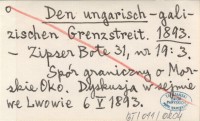 Den ungarisch-gali-
zischen Grenzstreit. 1893.
- Zipser Bote 31, nr 19: 3.
Spór graniczny o Mor-
skie Oko. Dyskusja w sejmie
we Lwowie 6 V 1893.